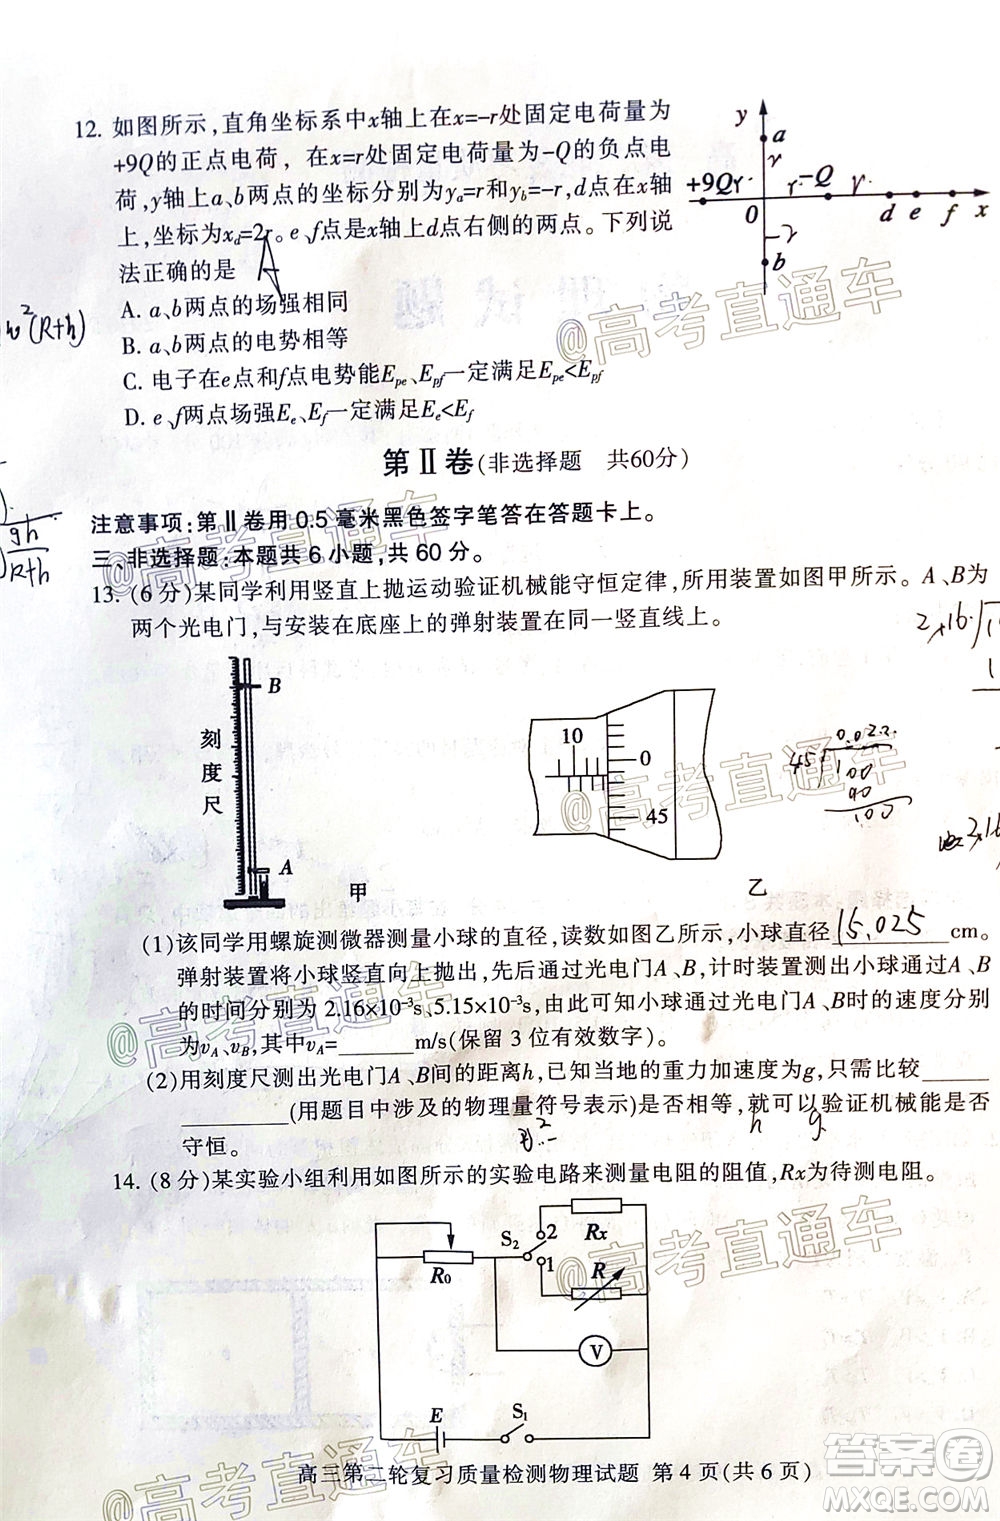 12. 如图所示,直角坐标系中x轴上在x=-r处固定电荷量为
+9Q的正点电荷，在x=r处固定电荷量为-Q的负点电
荷,y轴上a、b两点的坐标分别为yₐ=r和y_b=-r,d点在x轴
上,坐标为x_d=2r。e、f点是x轴上d点右侧的两点。下列说
法正确的是
y
a
r
+9Q r
r -Q r
0
d e f x
-r
b
A. a、b两点的场强相同
B. a、b两点的电势相等
C. 电子在e点和f点电势能E_pe、E_pf一定满足E_pe<E_pf
D. e、f两点场强E_e、E_f一定满足E_e<E_f
w²(R+h)
gh
R+h
第Ⅱ卷(非选择题　共60分)
注意事项:第Ⅱ卷用0.5毫米黑色签字笔答在答题卡上。
三、非选择题:本题共6小题,共60分。
13. (6分)某同学利用竖直上抛运动验证机械能守恒定律,所用装置如图甲所示。A、B为
两个光电门,与安装在底座上的弹射装置在同一竖直线上。
2.16
B
刻度尺
A
甲
10
0
45
乙
0.022
45
100
90
100
2.16
(1)该同学用螺旋测微器测量小球的直径,读数如图乙所示,小球直径15.025cm。
弹射装置将小球竖直向上抛出,先后通过光电门A、B,计时装置测出小球通过A、B
的时间分别为 2.16×10⁻³s、5.15×10⁻³s,由此可知小球通过光电门A、B时的速度分别
为v_A、v_B,其中v_A=______m/s(保留 3 位有效数字)。
(2)用刻度尺测出光电门A、B间的距离h,已知当地的重力加速度为g,只需比较______
______(用题目中涉及的物理量符号表示)是否相等,就可以验证机械能是否
守恒。
h g
14. (8分)某实验小组利用如图所示的实验电路来测量电阻的阻值,Rx为待测电阻。
R₀
S₂
2
1
Rx
R
V
E
S₁
高三第二轮复习质量检测物理试题 第4页(共6页)
@高考直通车
@高考直通车
@高考直通车
@高考直通车
@高考直通车
@高考直通车
@高考直通车
答案圈
MXQE.COM